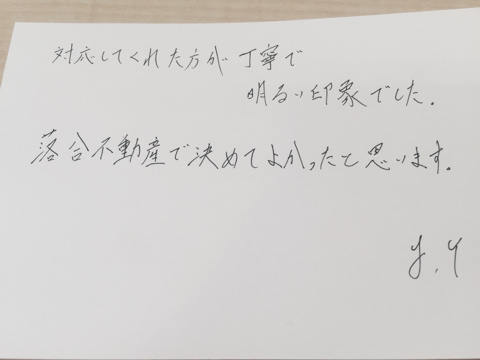 対応してくれた方が丁寧で
明るい印象でした.
落合不動産で決めてよかったと思います.
y.y